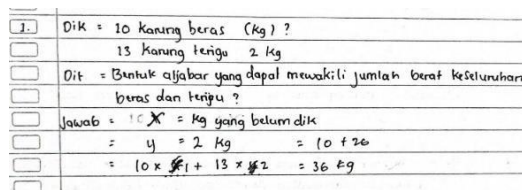 1. Dik = 10 Karung beras (kg) ?
13 Karung terigu 2 kg
Dit = Bentuk aljabar yang dapat mewakili jumlah berat keseluruhan
beras dan terigu ?
Jawab = 10 x = kg yang belum dik
= y = 2 kg = 10 + 26
= 10 x 1 + 13 x 2 = 36 kg